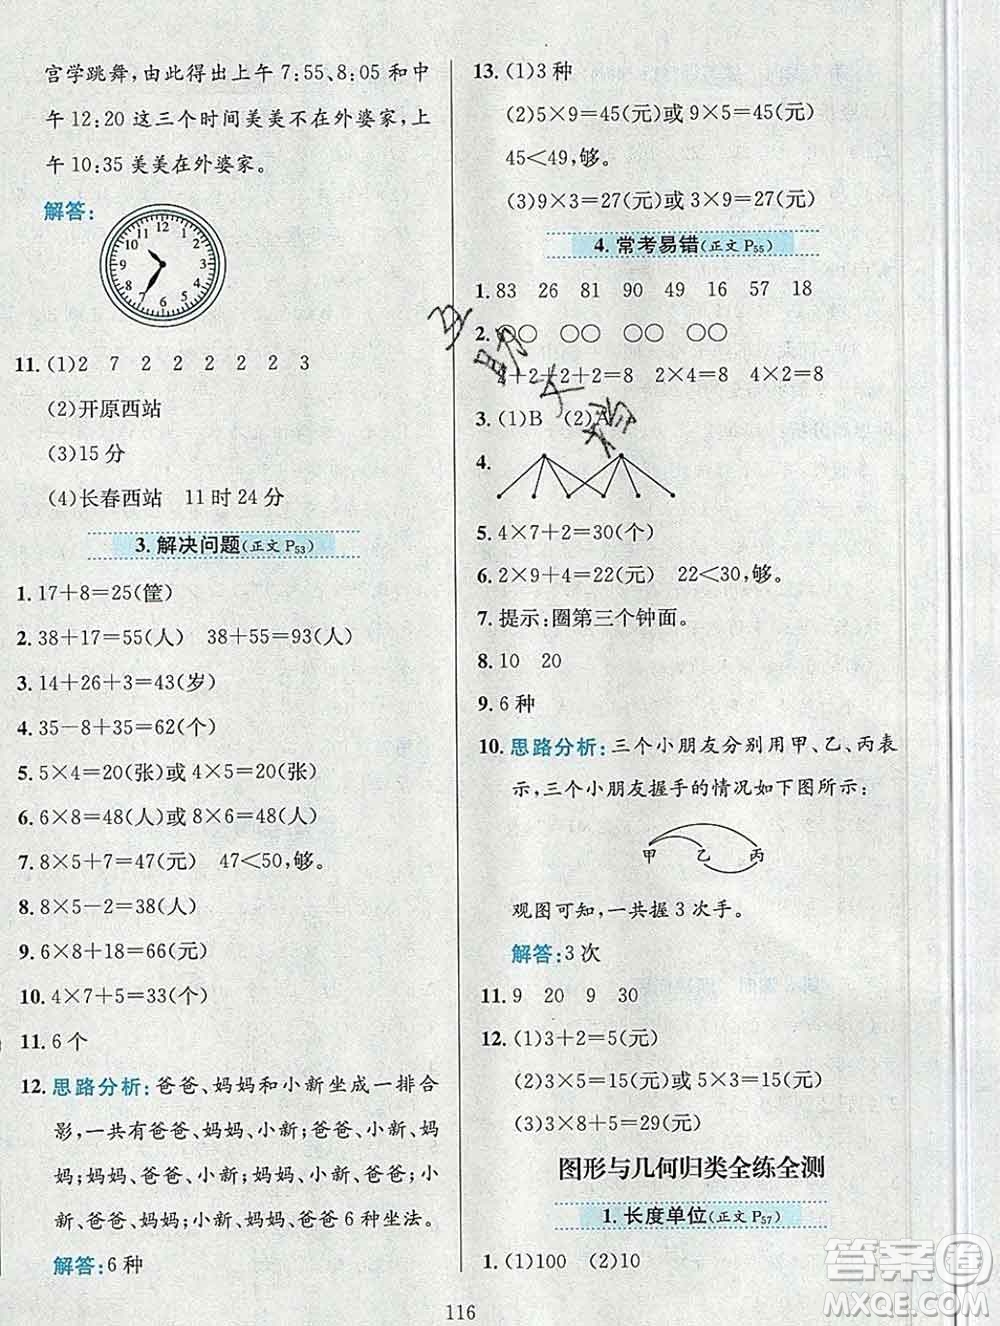 宫学跳舞,由此得出上午 7:55、8:05 和中
午 12:20 这三个时间美美不在外婆家,上
午 10:35 美美在外婆家。
解答:
12 1 2 3 4 5 6 7 8 9 10 11
11. (1)2 7 2 2 2 2 2 3
(2)开原西站
(3)15 分
(4)长春西站 11 时 24 分
3. 解决问题(正文 P53)
1. 17+8=25(筐)
2. 38+17=55(人) 38+55=93(人)
3. 14+26+3=43(岁)
4. 35-8+35=62(个)
5. 5×4=20(张)或 4×5=20(张)
6. 6×8=48(人)或 8×6=48(人)
7. 8×5+7=47(元) 47<50,够。
8. 8×5-2=38(人)
9. 6×8+18=66(元)
10. 4×7+5=33(元)
11. 6 个
12. 思路分析:爸爸、妈妈和小新坐成一排合
影,一共有爸爸、妈妈、小新;爸爸、小新、妈
妈;妈妈、爸爸、小新;妈妈、小新、爸爸;小
新、爸爸、妈妈;小新、妈妈、爸爸 6 种坐法。
解答:6 种
13. (1)3 种
(2)5×9=45(元)或 9×5=45(元)
45<49,够。
(3)9×3=27(元)或 3×9=27(元)
4. 常考易错(正文 P55)
1. 83 26 81 90 49 16 57 18
2. ○○ ○○ ○○ ○○
2+2+2+2=8 2×4=8 4×2=8
3. (1)B (2)A
4.
5. 4×7+2=30(个)
6. 2×9+4=22(元) 22<30,够。
7. 提示:圈第三个钟面。
8. 10 20
9. 6 种
10. 思路分析:三个小朋友分别用甲、乙、丙表
示,三个小朋友握手的情况如下图所示:
甲 乙 丙
观图可知,一共握 3 次手。
解答:3 次
11. 9 20 9 30
12. (1)3+2=5(元)
(2)3×5=15(元)或 5×3=15(元)
(3)3×8+5=29(元)
图形与几何归类全练全测
1. 长度单位(正文 P57)
1. (1)100 (2)10
116
答案圈
MXQE.COM